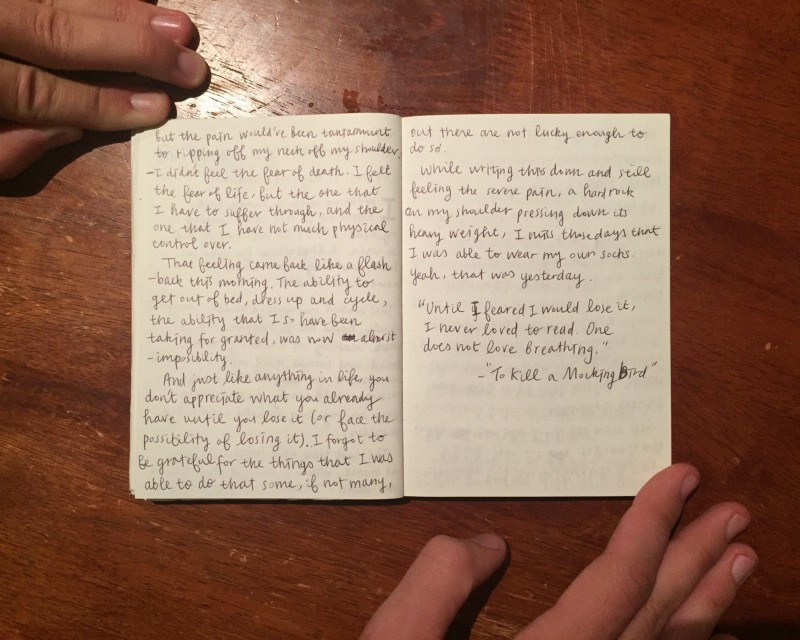 but the pain would've been tantamount
to ripping off my neck off my shoulder.
- I didn't feel the fear of death. I felt
the fear of life, but the one that
I have to suffer through, and the
one that I have not much physical
control over.
That feeling came back like a flash
-back this morning. The ability to
get out of bed, dress up and cycle,
the ability that I so have been
taking for granted, was now almost
- impossibility.
And just like anything in life, you
don't appreciate what you already
have until you lose it (or face the
possibility of losing it). I forgot to
be grateful for the things that I was
able to do that some, if not many,
out there are not lucky enough to
do so.
While writing this down and still
feeling the severe pain, a hard rock
on my shoulder pressing down its
heavy weight, I miss those days that
I was able to wear my own socks.
Yeah, that was yesterday.
"Until I feared I would lose it,
I never loved to read. One
does not love breathing."
- "To Kill a Mocking Bird"